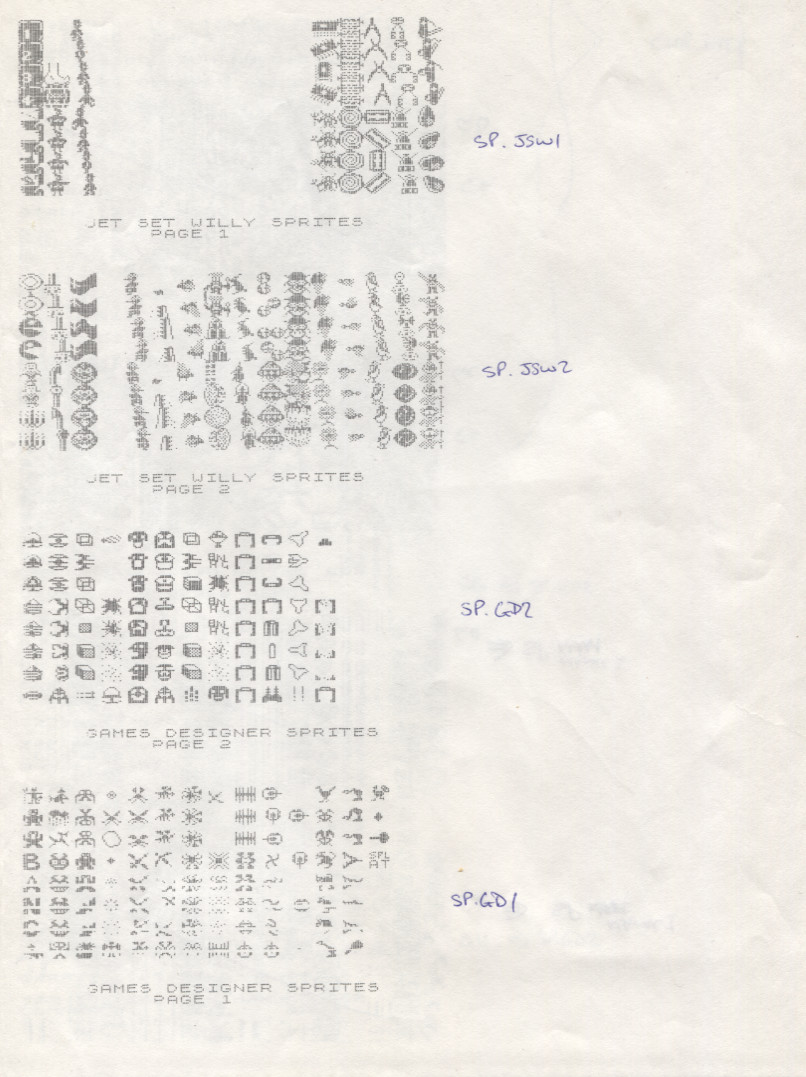 SP. JSW1
JET SET WILLY SPRITES
PAGE 1
SP. JSW2
JET SET WILLY SPRITES
PAGE 2
SP. GD2
GAMES DESIGNER SPRITES
PAGE 2
B
SPL
AT
SP. GD1
GAMES DESIGNER SPRITES
PAGE 1